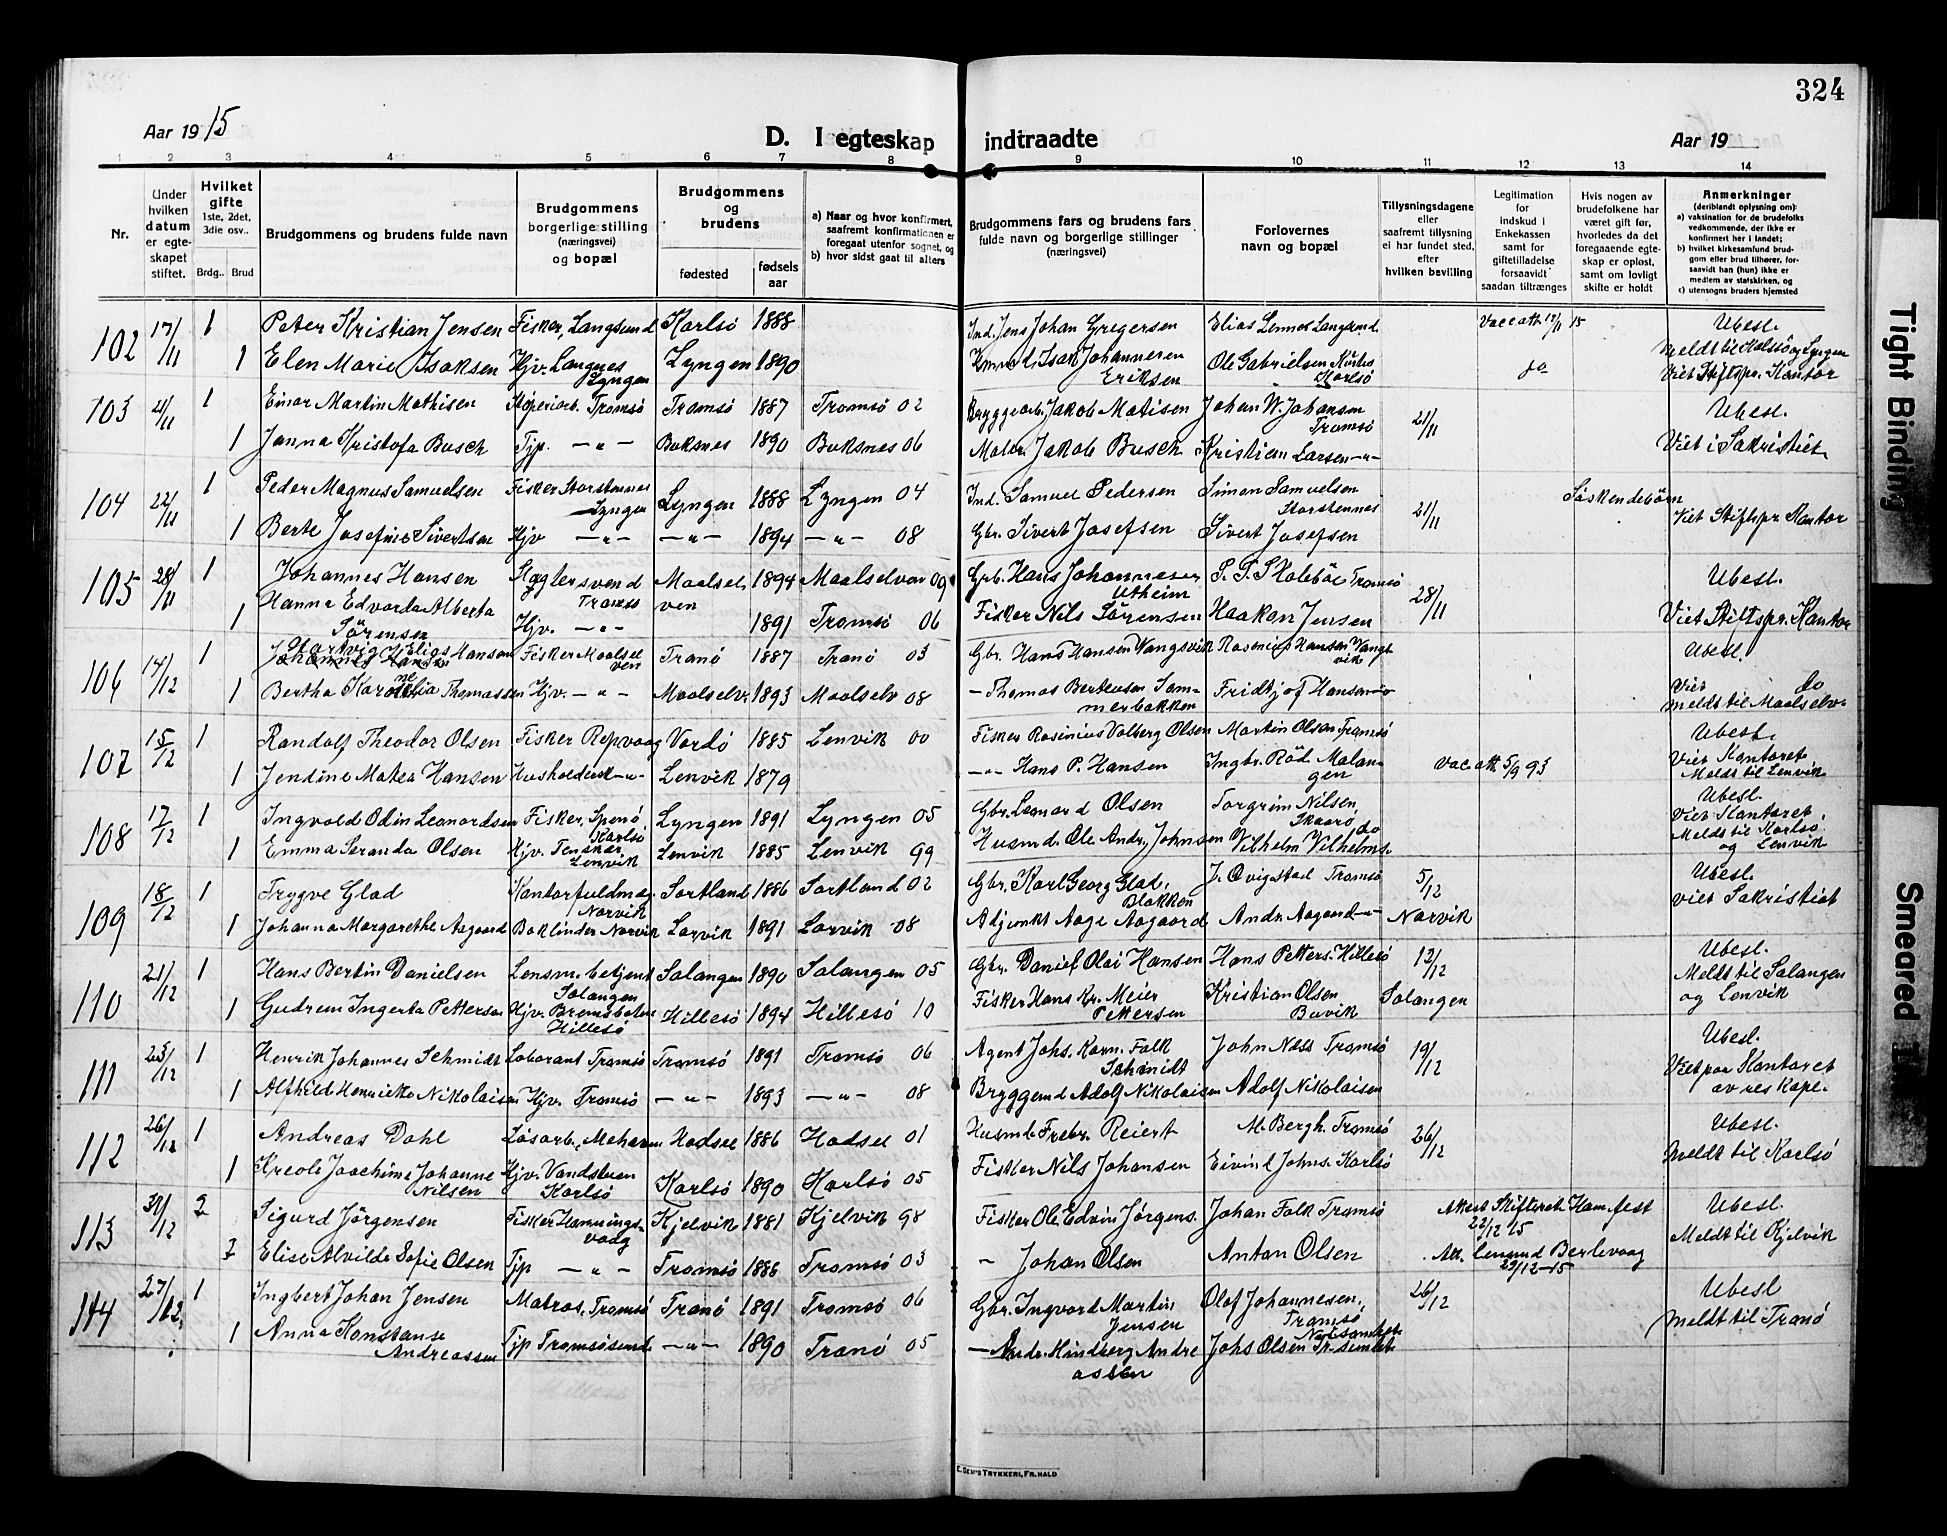 324
Aar 1915
D. I egteskap indtraadte
Aar 19
1 2 3 4 5 6 7 8 9 10 11 12 13 14
Nr.
Under hvilken datum er egteskapet stiftet.
Hvilket gifte 1ste, 2det, 3die osv..
Brdg.. Brud
Brudgommens og brudens fulde navn
Brudgommens borgerlige stilling (næringsvei) og bopæl
Brudgommens og brudens
fødested
fødsels aar
a) Naar og hvor konfirmert, saafremt konfirmationen er foregaat utenfor sognet, og
b) hvor sidst gaat til alters
Brudgommens fars og brudens fars fulde navn og borgerlige stillinger (næringsvei)
Forlovernes navn og bopæl
Tillysningsdagene eller saafremt tillysning ei har fundet sted, efter hvilken bevilling
Legitimation for indskud i Enkekassen samt for giftetilladelse forsaavidt saadan tiltrænges
Hvis nogen av brudefolkene har været gift før, hvorledes da det foregaaende egteskap er opløst, samt om lovligt skifte er holdt
Anmerkninger (deriblandt oplysning om):
a) vaksination for de brudefolks vedkommende, der ikke er konfirmert her i landet;
b) hvilket kirkesamfund brudgom eller brud tilhører, forsaavidt han (hun) ikke er medlem av statskirken, og
c) utensogns bruders hjemsted
102 17/11 1 Peter Kristian Jensen Fisker, Langsund Karlsö 1888 Ind. Jens Johan Gregersen Elias Lennes Langsund. Vac att 17/11 15 Ubest.
1 Elen Marie Isaksen Hjv. Langnes Lyngen Lyngen 1890 Isak Johannesen Eriksen Ole Gabrielsen Karlsö do Meldt til Kalsö og Lyngen Viet Stiftspr. Kontor
103 21/11 1 Einar Martin Mathisen Støperiarb. Tromsö Tromsö 1887 Tromsö 02 Bryggearb. Jakob Matisen Johan W. Johansen Tromsö 21/11 Ubest.
1 Janna Kristofa Busch Tjp. —"— Buksnes 1890 Buksnes 06 Maler Jakob Busch Kristian Larsen —"— Viet i Sakristiet
104 22/11 1 Peder Magnus Samuelsen Fisker Storstennes Lyngen Lyngen 1888 Lyngen 04 Ind. Samuel Pedersen Simon Samuelsen Storstennes 21/11 Söskendebörn
1 Berte Josefine Sivertsen Hjv —"— —"— 1894 —"— 08 Gbr. Sivert Josefsen Sivert Josefsen Viet Stiftspr Kontor
105 28/11 1 Johannes Hansen Slagtersvend Tromsö Maalselven 1894 Maalselven 09 Grb. Hans Johannesen Utheim Tromsö 28/11 Ubest.
1 Hanna Edvarda Alberta Sörensen Hjv. —"— 1891 Tromsö 06 Fisker Nils Sörensen Haakon Jensen Viet Stiftspr. Kontor
106 14/12 1 Hartvig Elias Hansen Fisker Maalselven Tranö 1887 Tranö 03 Gbr. Hans Hansen Vangsvik Rosenius Hansen Vangsvik Ubest.
1 Bertha Karoline Thomassen Hjv. —"— Maalselv. 1893 Maalselv 08 — Thomas Berteusen Sommerbakken Fridtjof Hansen Viet do Meldt til Maalselv.
107 15/12 1 Randolf Theodor Olsen Fisker Repvaag Vardö 1885 Lenvik 00 Fisker Rosinius Valberg Olsen Martin Olsen Tromsö Ubest.
1 Jendine Matea Hansen Husholderske —"— Lenvik 1879 —"— Hans P. Hansen Ingbr. Röd Malangen Vac att 5/9 93 Viet Kontoret Meldt til Lenvik
108 17/12 1 Ingvald Odin Leonardsen Fisker, Spenö Karlsö Lyngen 1891 Lyngen 05 Gbr. Leonard Olsen Torgrim Nilsen, Skaarö Ubest. Viet Kontoret,
1 Emma Seranda Olsen Hjv. Tenskjær Lenvik Lenvik 1885 Lenvik 99 Husmd. Ole Andr. Johnsen Vilhelm Vilhelms. do Meldt til Karlsö og Lenvik
109 18/12 1 Trygve Glad Kontorfuldmeg Narvik Sortland 1886 Sortland 02 Gbr. Karl Georg Glad, Blokken J. Qvigstad Tromsö 5/12 Ubest.
1 Johanna Margarethe Aagaard Narvik Larvik 1891 Larvik 08 Adjunkt Aage Aagaard Andr. Aagaard —"— Narvik viet Sakristiet
110 21/12 1 Hans Bertin Danielsen Lensm. betjent Salangen Salangen 1890 Salangen 05 Gbr. Daniel Olai Hansen Hans Petters. Hillesö 12/12 Ubest.
1 Gudrun Ingerta Pettersen Hjv. Hillesö Hillesö 1894 Hillesö 10 Fisker Hans Kr. Meier Pettersen Kristian Olsen Buvik Salangen Meldt til Salangen og Lenvik
111 23/12 1 Henrik Johannes Schmidt Laborant Tromsö Tromsö 1891 Tromsö 06 Agent Johs. Korn. Falk Schmidt John Næss Tromsö 19/12 Ubest.
1 Alfhild Henriette Nikolaisen Hjv. Tromsö —"— 1893 —"— 08 Bryggemd Adolf Nikolaisen Adolf Nikolaisen Viet paa Kontoret av res kape.
112 26/12 1 Andreas Dahl Løsarb. Mehavn Hadsel 1886 Hadsel 01 Husmd. Fredr. Reiert M. Bergh. Tromsö 26/12 Ubest.
1 Kreole Joachime Johanne Nilsen Hjv. Vandstuen Karlsö Karlsö 1890 Karlsö 05 Fisker Nils Johansen Eivind Johns. Karlsö Meldt til Karlsö
113 30/12 2 Sigurd Jörgensen Fisker Honningsvaag Kjelvik 1881 Kjelvik 98 Fisker Ole Edvin Jörgens. Johan Falk Tromsö Attest Skifteret. Hamfest 22/12 15 Ubest.
Elise Alvilde Sofie Olsen Tjp —"— Tromsö 1888 Tromsö 03 — Johan Olsen Anton Olsen Att. Lensmd Berlevaag 29/12–15 Meldt til Kjelvik
114 27/12. 1 Ingbert Johan Jensen Matros, Tromsö Tranö 1891 Tromsö 06 Gbr. Ingvard Martin Jensen Olaf Johannesen, Tromsö 26/12 Ubest
1 Anna Konstanse Andreassen Tjp Tromsösund —"— 1890 Tranö 05 — Andr. Hindberg Andreassen Johs Olsen Meldt til Tranö
E. SEM'S TRYKKERI, FR.HALD
Tight Binding
Smeared